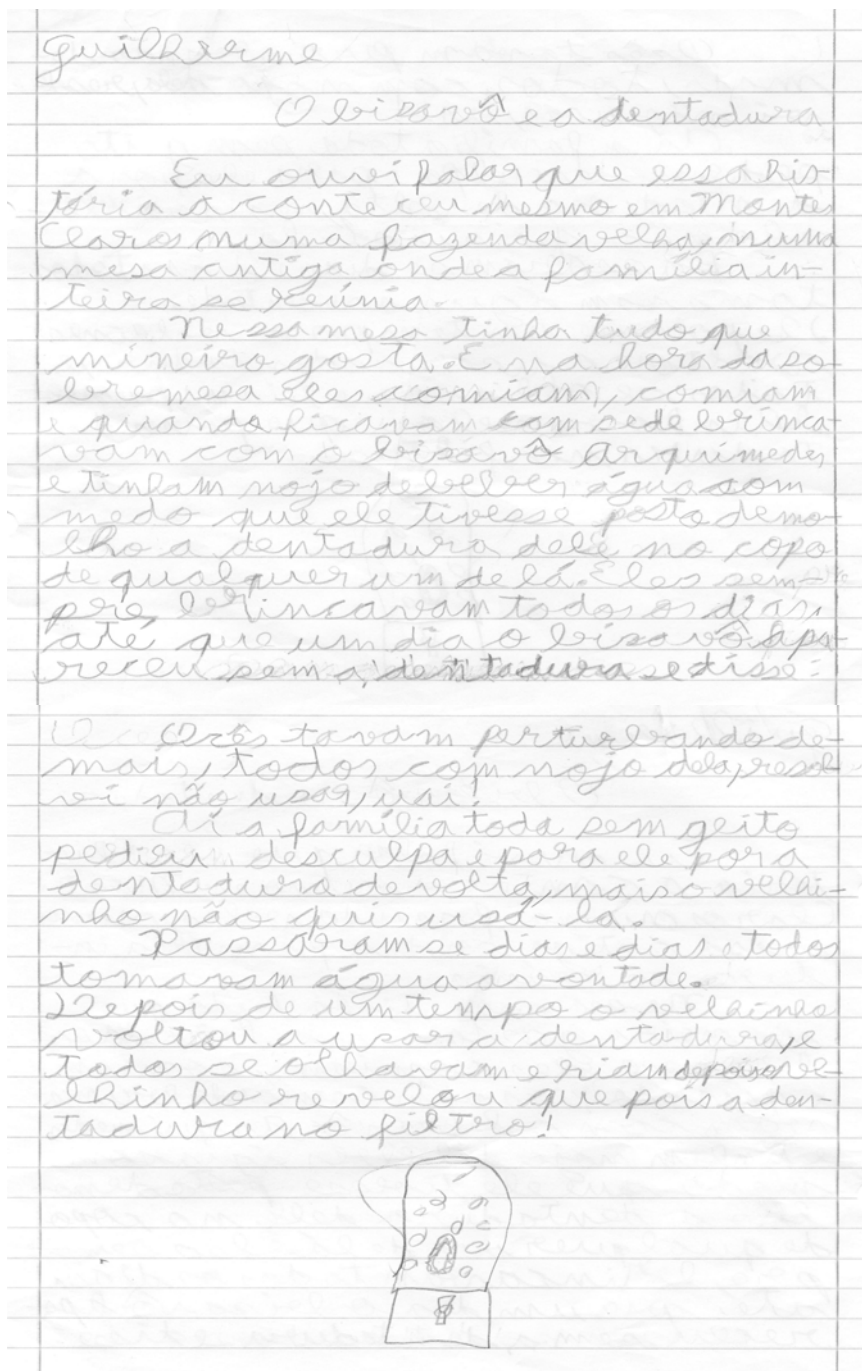 Guilherme
O bisavô e a dentadura
Eu ouvi falar que essa his-
tória aconteceu mesmo em Montes
Claros numa fazenda velha, numa
mesa antiga onde a família in-
teira se reúnia.
Nessa mesa tinha tudo que
mineiro gosta. E na hora da so-
bremesa eles comiam, comiam
e quando ficavam com sede brinca-
vam com o bisavô Arquimedes
e tinham nojo de beber água com
medo que ele tivesse posto de mo-
lho a dentadura dele no copo
de qualquer um de lá. Eles sem-
pre brincavam todos os dias,
até que um dia o bisavô apa-
receu sem a dentadura e disse:
Ocês tavam perturbando de-
mais, todos com nojo dela, resol-
vi não usar, uai!
Aí a família toda sem geito
pediu desculpa e para ele por a
dentadura de volta, mais o velhi-
nho não quis usá-la.
Passaram se dias e dias e todos
tomavam água a vontade.
Depois de um tempo o velhinho
voltou a usar a dentadura, e
todos se olhavam e riam depois o ve-
lhinho revelou que pois a den-
tadura no filtro!